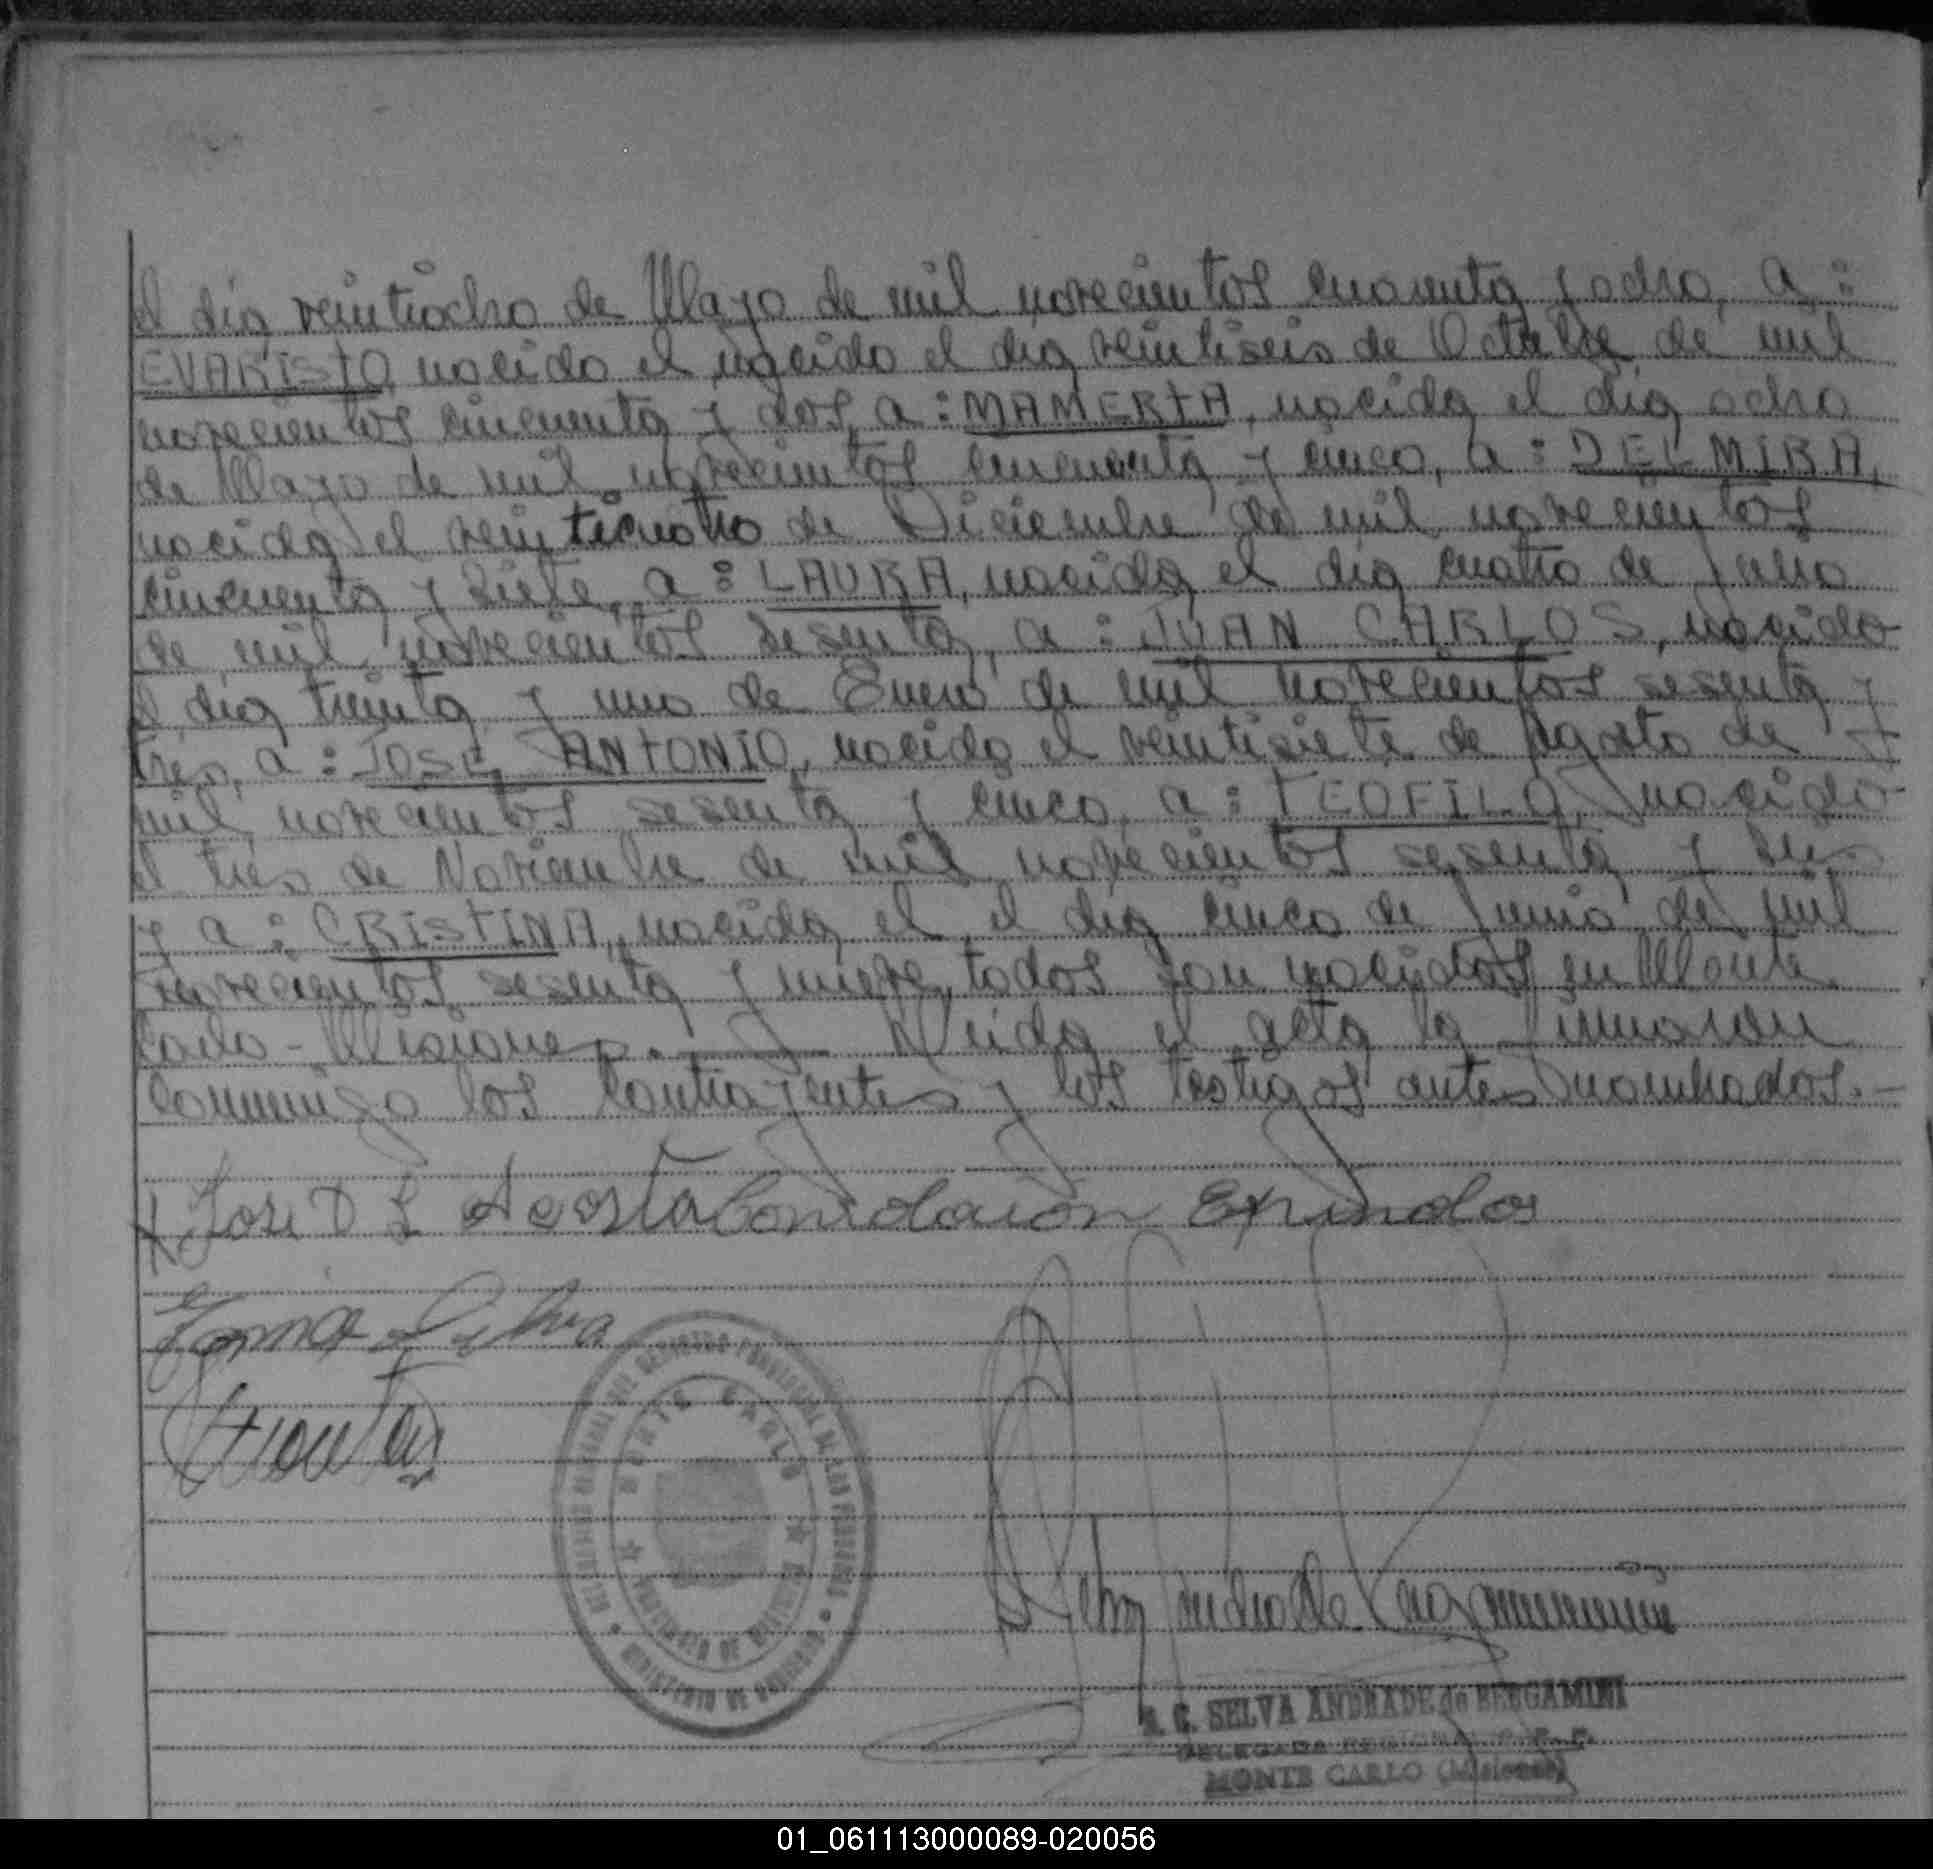 el día veintiocho de Mayo de mil novecientos cuarenta y ocho, a:
EVARISTO, nacido el nacido el día veintiseis de Octubre de mil
novecientos cincuenta y dos, a: MAMERTA, nacida el día ocho
de Mayo de mil novecientos cincuenta y cinco, a: DELMIRA,
nacida el veinticuatro de Diciembre de mil novecientos
cincuenta y siete, a: LAURA, nacida el día cuatro de Julio
de mil novecientos sesenta, a: JUAN CARLOS, nacido
el día treinta y uno de Enero de mil novecientos sesenta y
tres, a: JOSE ANTONIO, nacido el veintisiete de Agosto de
mil novecientos sesenta y cinco, a: TEOFILO, nacido
el tres de Noviembre de mil novecientos sesenta y
y a: CRISTINA, nacida el el día cinco de Junio de mil
novecientos sesenta y nueve, todos son nacidos en Monte
Carlo - Misiones. — Leida el acta la firmaron
conmigo los contrayentes y los testigos antes nombrados.-
Jose D L Acosta Espindola
Silva
MONTE CARLO
PROVINCIA DE MISIONES
MINISTERIO DE GOBIERNO
R. G. SELVA ANDRADE de BERGAMINI
DELEGADA
MONTE CARLO (Misiones)
01_061113000089-020056